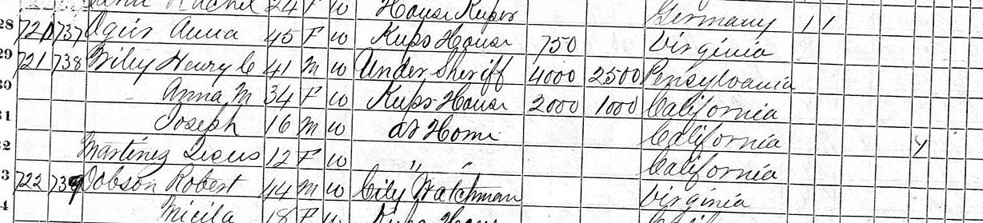 Rachel 24 F W House Keeper Germany 1 1
28 720 737 Agur Anna 45 F W Keeps House 750 Virginia
29 721 738 Henry C 41 M W Under Sheriff 4000 2500 Pensylvania
30 Anna M 34 F W Keeps House 2000 1000 California
31 Joseph 16 M W at Home California Y
32 Martinez 12 F W " " California
3 722 739 Dobson Robert 44 M W City Watchman Virginia
4 Micila 18 F W Keeps House